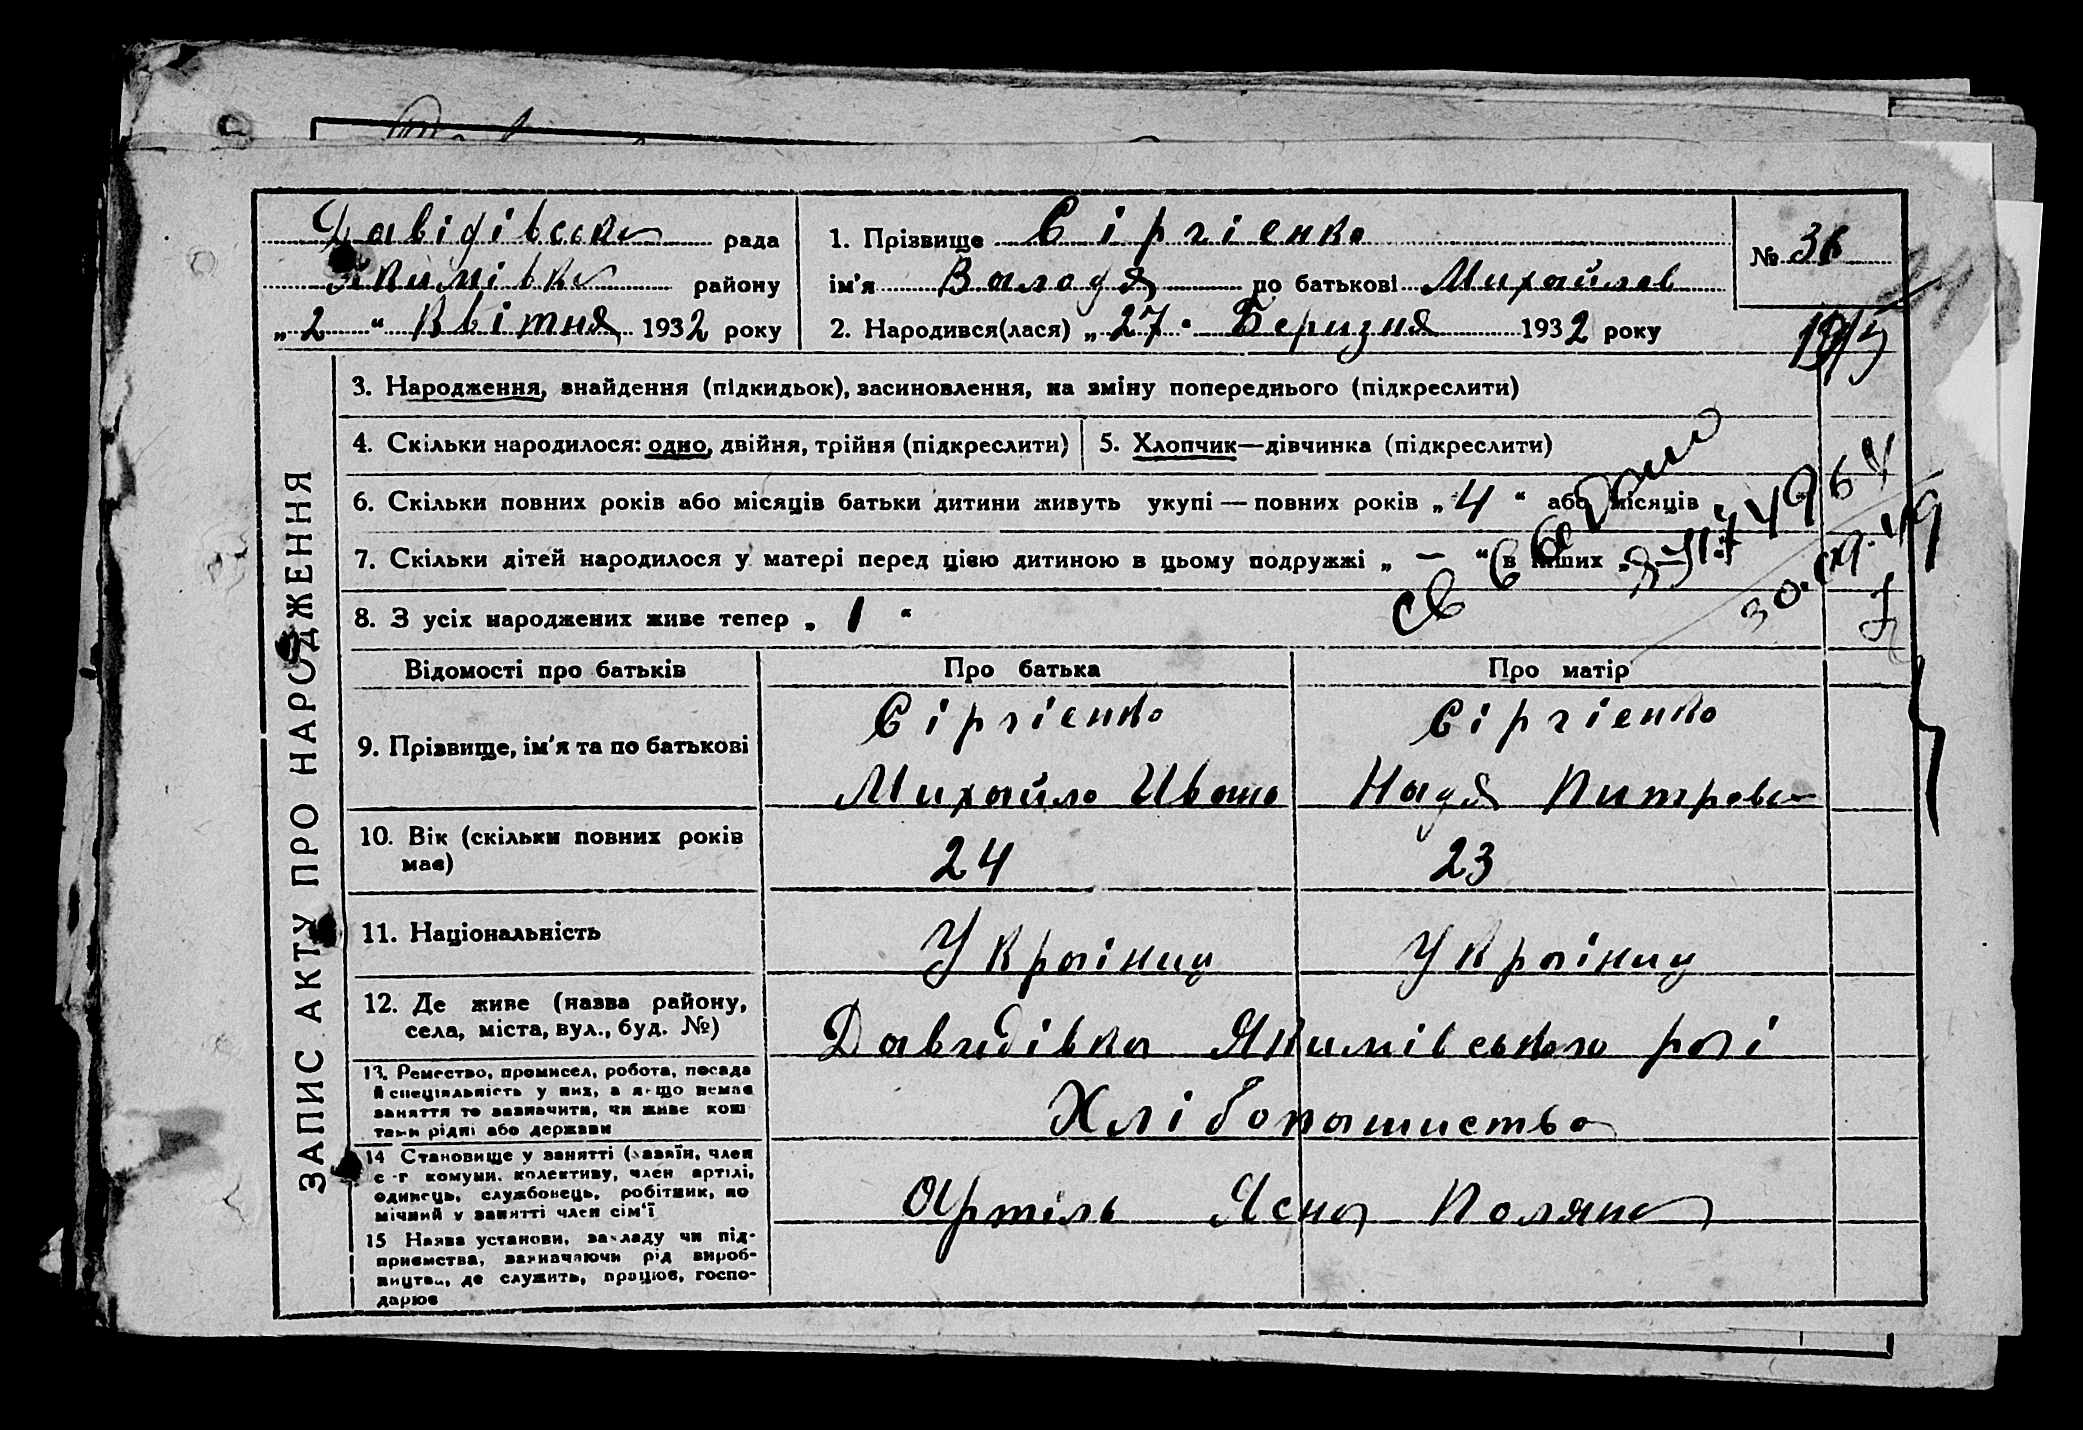 Давідівська рада
Якимівка району
„ 2 “ Квітня 1932 року
1. Прізвище Сіргієнко
ім'я Володя по батькові Михайлов
2. Народився(лася) „ 27 “ Беризня 1932 року
№ 36
ЗАПИС АКТУ ПРО НАРОДЖЕННЯ
3. Народження, знайдення (підкидьок), засиновлення, на зміну попереднього (підкреслити)
4. Скільки народилося: одно, двійня, трійня (підкреслити)
5. Хлопчик—дівчинка (підкреслити)
6. Скільки повних років або місяців батьки дитини живуть укупі — повних років „ 4 “ або місяців
7. Скільки дітей народилося у матері перед цією дитиною в цьому подружжі „ — “ в інших „
8. З усіх народжених живе тепер „ 1 “
Відомості про батьків
Про батька
Про матір
9. Прізвище, ім'я та по батькові
Сіргієнко
Михайло Ивано
Сіргієнко
Надя Питровс
10. Вік (скільки повних років
має)
24
23
11. Національність
Украіниц
Украіниц
12. Де живе (назва району,
села, міста, вул., буд. №)
Давидівка Якимівського раі
13. Ремество, промисел, робота, посада
й спеціяльність у них, а якщо немає
заняття то зазначити, чи живе кош
тами рідні або держави
Хлібопашиство
14 Становище у занятті (хазяїн, член
с-г комуни, колективу, член артілі,
одинець, службовець, робітник, по
мічний у занятті член сім'ї
Артіль Ясна Поляна
15 Назва установи, закладу чи під-
приємства, зазначаючи рід вироб-
ництва, де служить, працює, госпо-
дарює